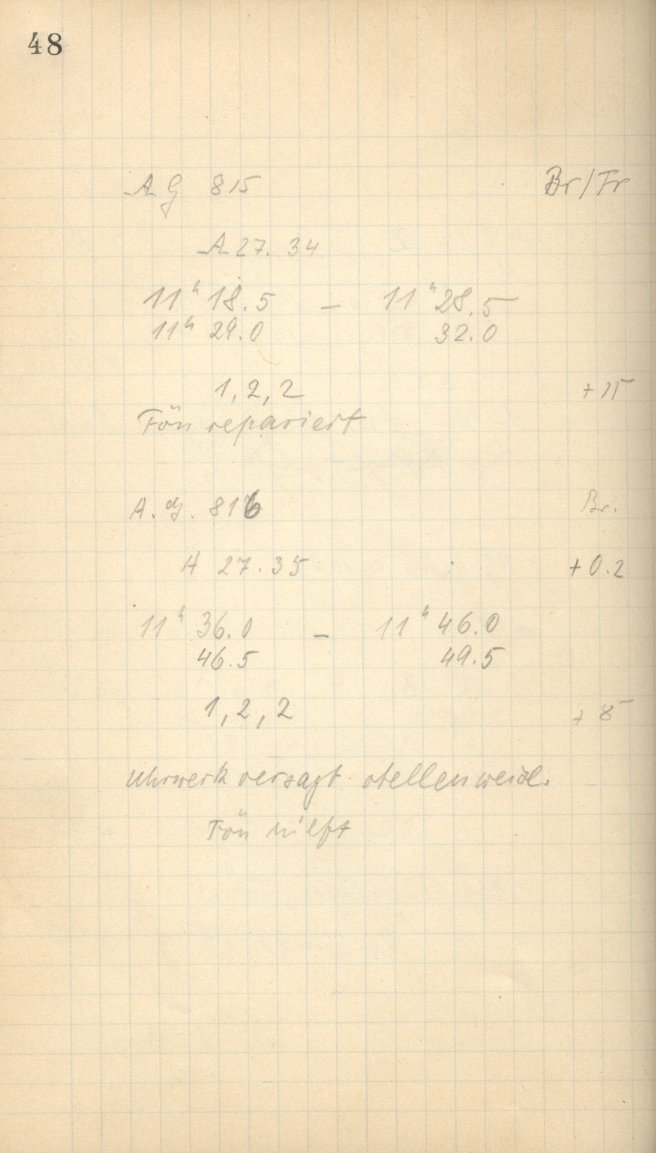 48
A G 815 Br/Fr
A 27.34
11ʰ 18.5 – 11ʰ 28.5
11ʰ 29.0 32.0
1, 2, 2 + 15
Fön repariert
A. G. 816 Br.
A 27.35 + 0.2
11ʰ 36.0 – 11ʰ 46.0
46.5 49.5
1, 2, 2 + 8
Uhrwerk versagt stellenweise.
Fön hilft